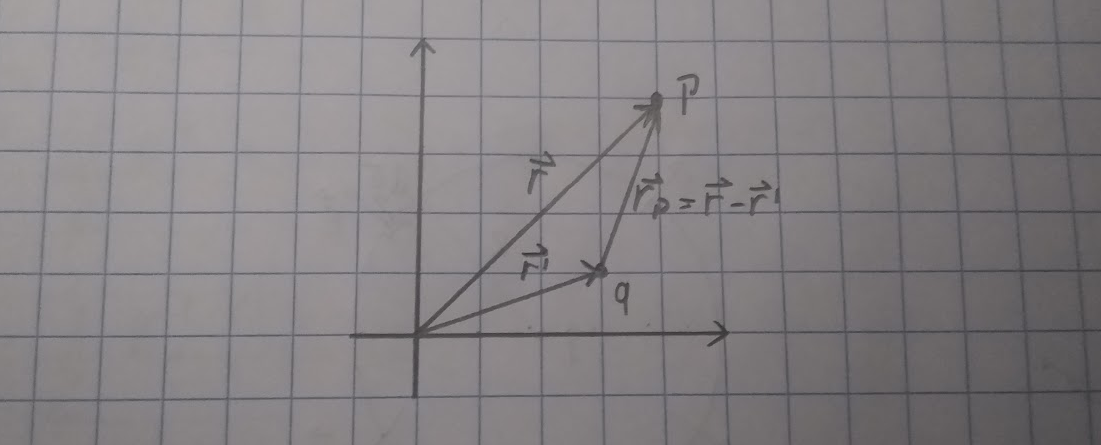 P⃗
r⃗
r⃗ₚ = r⃗ - r⃗'
r⃗'
q